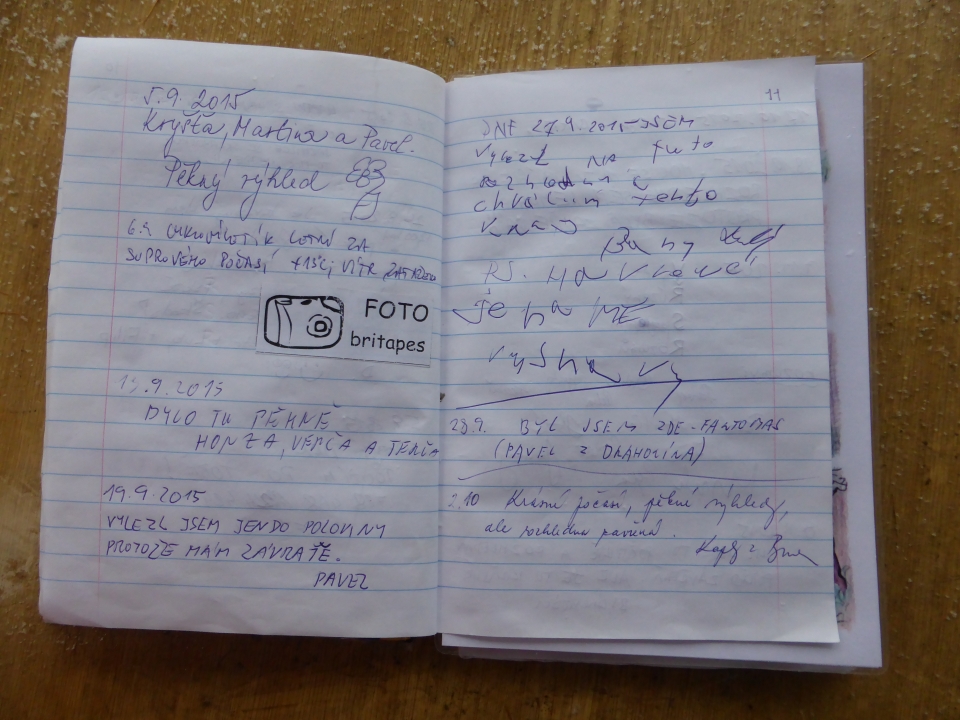 5.9. 2015
Kryšťa, Martina a Pavel.
Pěkný výhled
6.9. LETNÍ ZA
SUPROVÉHO POČASÍ +15°C, VÍTR
FOTO
britapes
13.9.2015
BYLO TU PĚKNĚ
HONZA, VERČA A TERČA
19.9.2015
VYLEZL JSEM JEN DO POLOVINY
PROTOŽE MÁM ZÁVRAŤE.
PAVEL
11
DNE 27.9.2015 JSEM
vylezl NA tuto
rozhlednu a
chválim tento
PS.
Je na
28.9. BYL JSEM ZDE - FANTOMAS
(PAVEL Z DRAHOTÍNA)
2.10 Krásné počasí, pěkné výhledy,
ale rozhledna zavřená.
z Brna